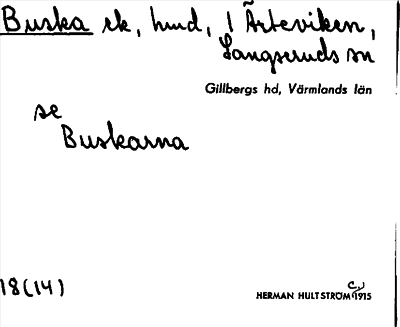 Buska sk, hmd, i Ärteviken,
Langseruds sn
Gillbergs hd, Värmlands län
se
Buskarna
18(14)
HERMAN HULTSTRÖM 1915